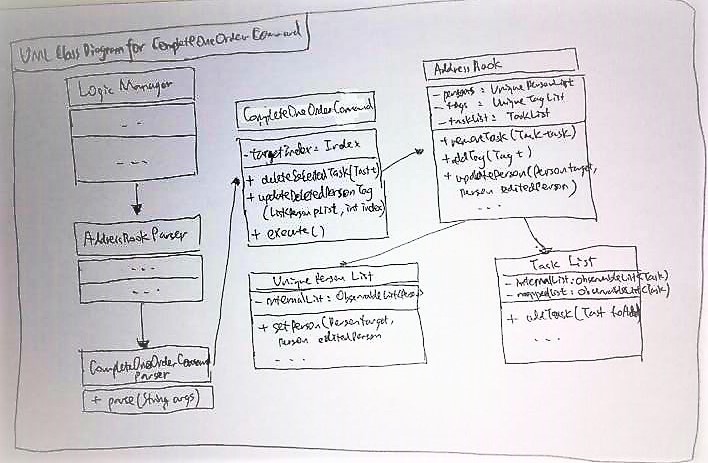 UML Class Diagram for CompleteOneOrderCommand
Logic Manager
- - -
- - -
AddressBookParser
- - -
- - -
CompleteOneOrderCommand
Parser
+ parse(String args)
CompleteOneOrderCommand
- targetIndex = Index
+ deleteSelectedTask(Task t)
+ updateDeletedPersonTag
(List<Person> pList, int index)
+ execute()
AddressBook
- persons = UniquePersonList
- tags = UniqueTagList
- taskList = TaskList
+ removeTask(Task task)
+ addTag(Tag t)
+ updatePerson(Person target,
Person editedPerson)
- - -
Unique Person List
- internalList: ObservableList<Person>
+ setPerson(Person target,
Person editedPerson
- - -
Task List
- internalList: ObservableList<Task>
- mappedList: ObservableList<Task>
+ addTask(Task toAdd)
- - -